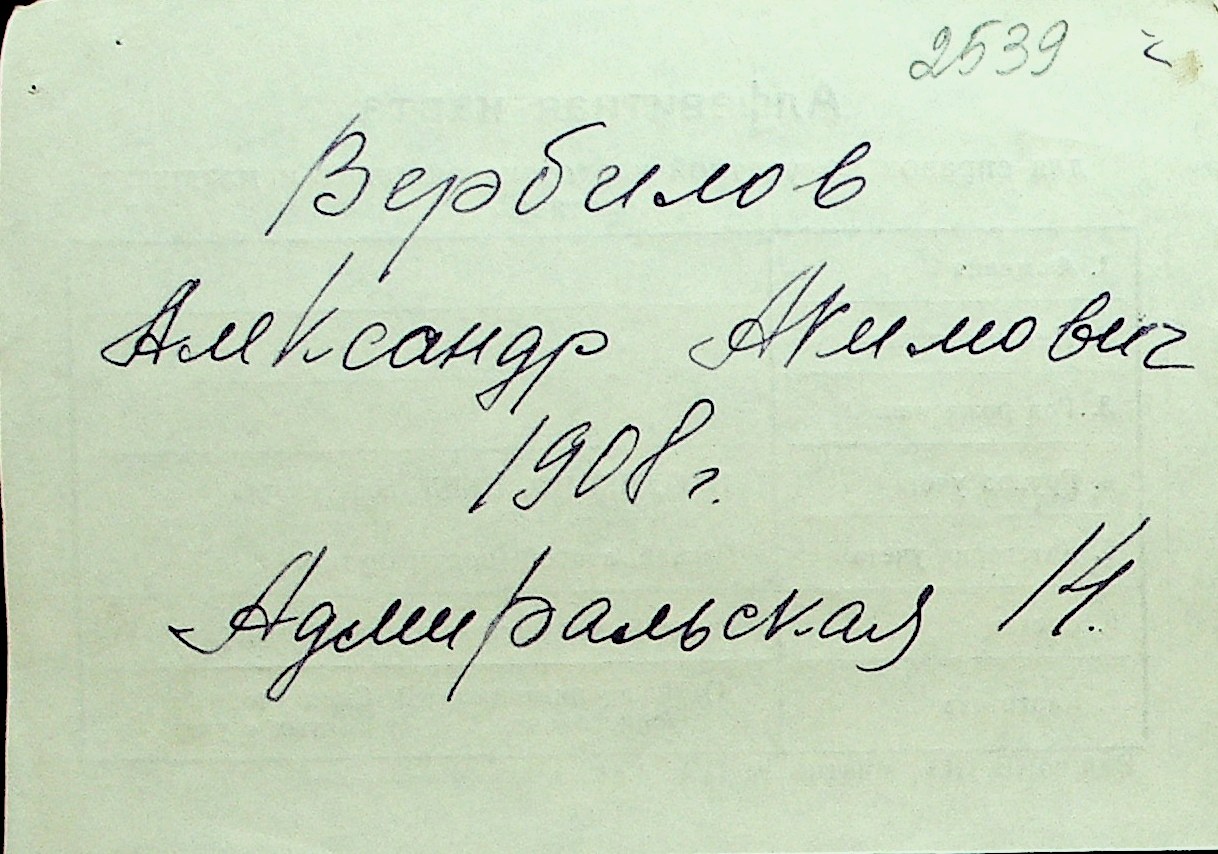 2539
Вербилов
Александр Акимович
1908 г.
Адмиральская 14.